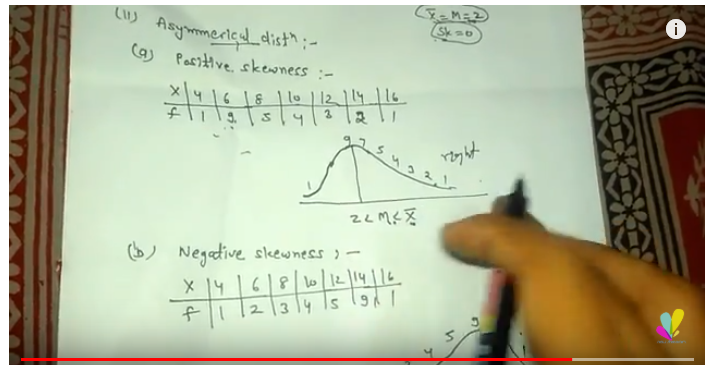 x̄ = M = 2
SK = 0
(ii) Asymmerical distn :-
(a) Positive skewness :-
X | 4 | 6 | 8 | 10 | 12 | 14 | 16
f | 1 | 9 | 5 | 4 | 3 | 2 | 1
9 7 5 4 3 2 1 right
1
2 < M < x̄
(b) Negative skewness ; -
X | 4 | 6 | 8 | 10 | 12 | 14 | 16
f | 1 | 2 | 3 | 4 | 5 | 9 | 1
9
5
4